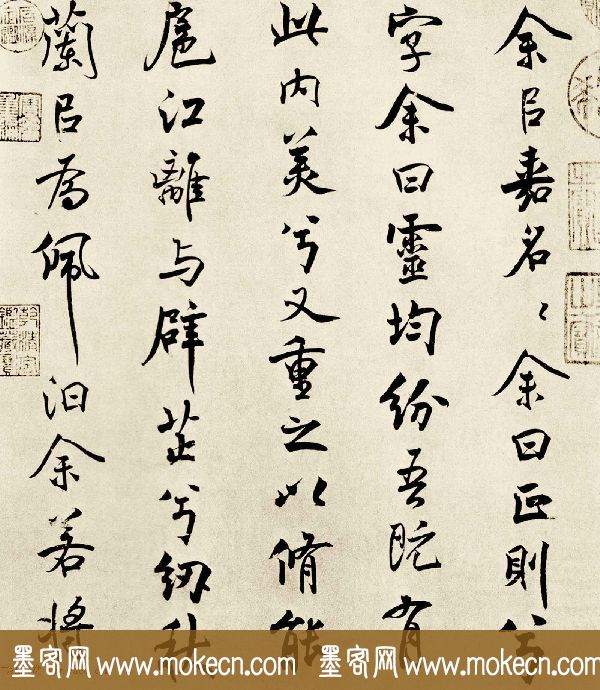 余㠯嘉名〻余曰正則兮
字余曰靈均紛吾既有
此内美兮又重之以脩能
扈江離与辟芷兮紉秋
蘭㠯為佩汩余若將
墨客网 www.mokecn.com 墨客网 www.mokecn.com 墨客网 www.mokecn.com